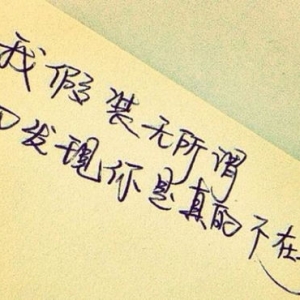 我假装无所谓
发现你是真的不在